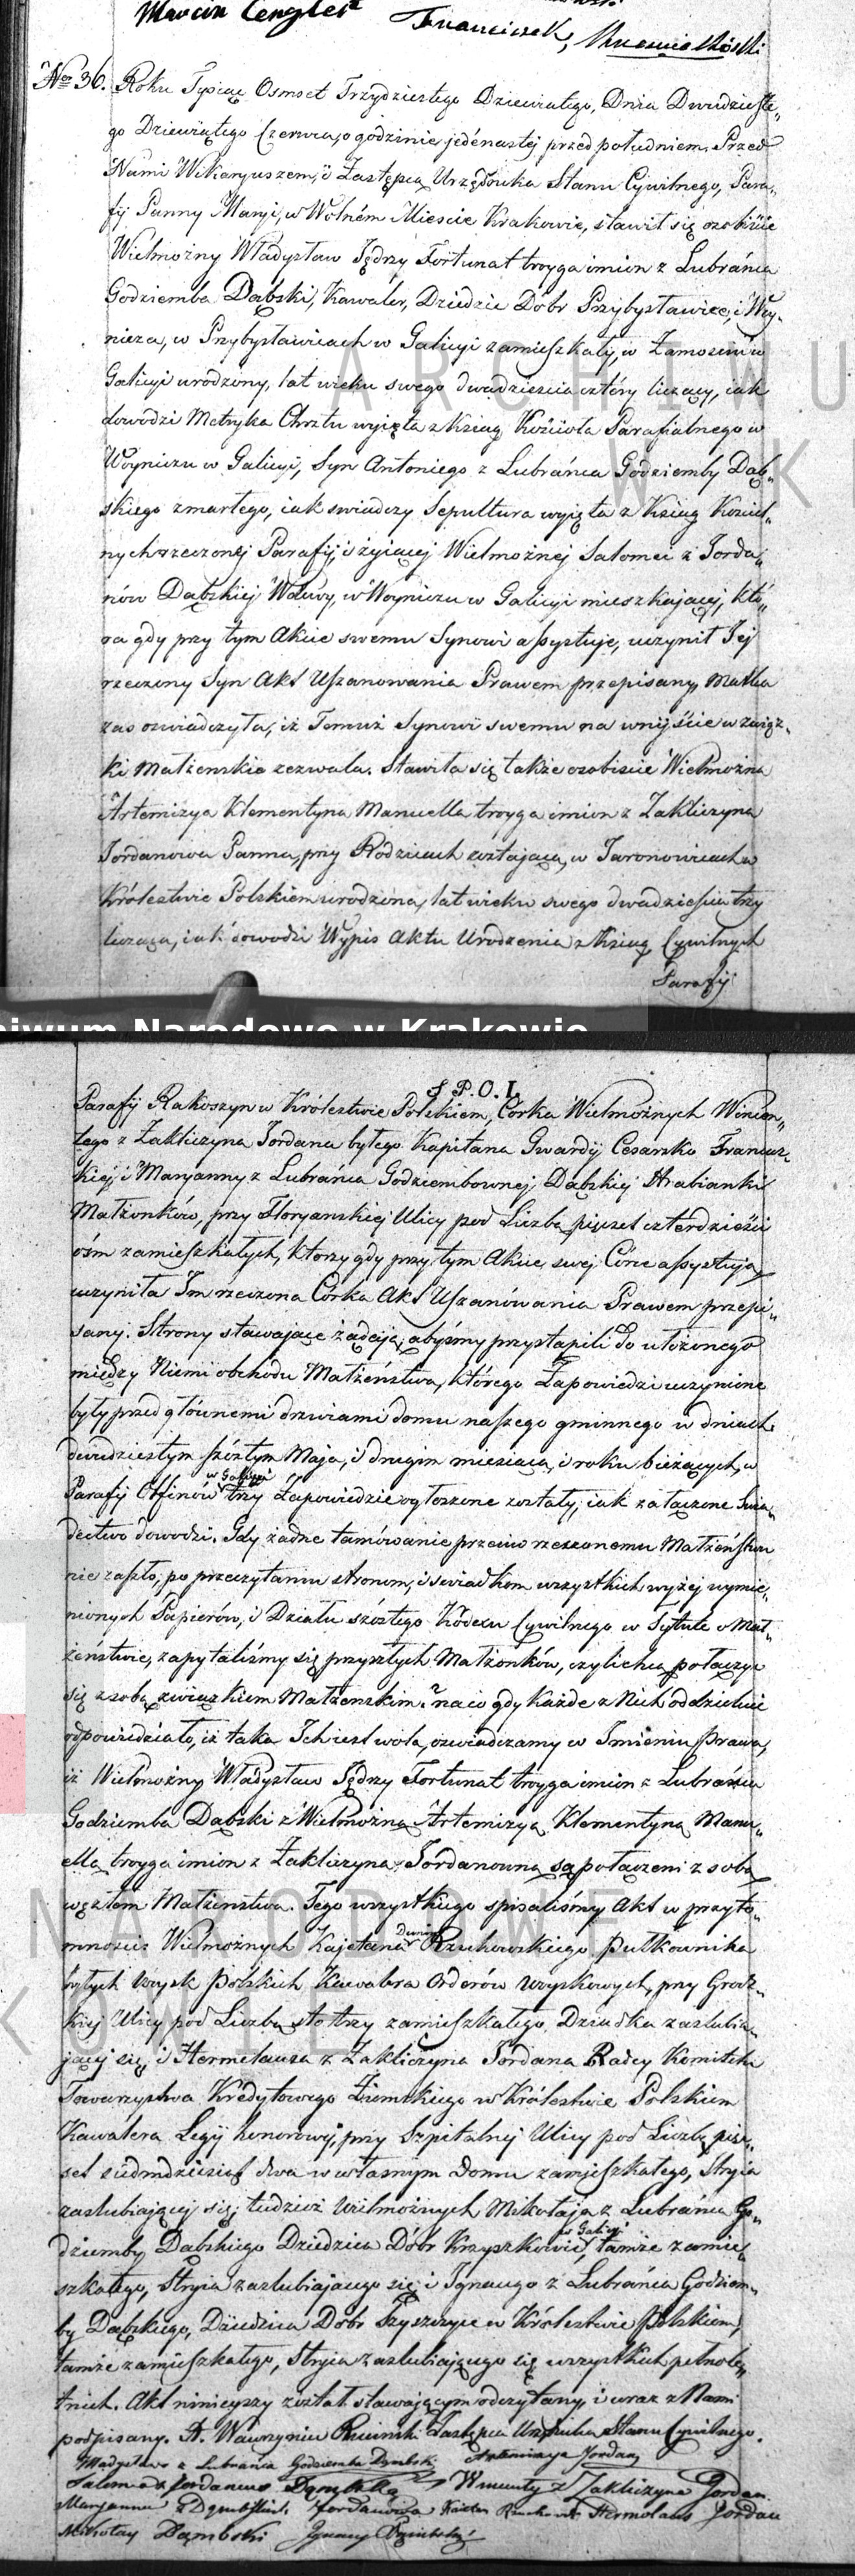 Marcin Cengler
Franciszek,
Nro 36. Roku Tysiąc Osmset Trzydziestego Dziewiatego, Dnia Dwudzieste„
go Dziewiątego Czerwca, o godzinie jedénastéj przed południem, Przed
Nami Wikaryuszem, i Zastępcą Urzędnika Stanu Cywilnego, Para„
fij Panny Maryi, w Wolném Mieście Krakowie, stawił się osobiście
Wielmożny Władysław Jędrzy Fortunat troyga imion z Lubrańca
Godziemba Dąbski, Kawaler, Dziedzic Dóbr Przybysławice, i Woy„
nicza, w Przybysławicach w Galicyi zamieszkały, w Zamościu w
Galicyi urodzony, lat wieku swego dwadzieścia cztéry liczący, iak
dowodzi Metryka Chrztu wyjęta z Ksiąg Kościoła Parafialnego w
Woyniczu w Galicyi, Syn Antoniego z Lubrańca Godziemby Dąb„
skiego zmarłego, iak swiadczy Sepultura wyjęta z Ksiąg Kościel„
nych rzeczonej Parafij, i żyiącej Wielmożnej Salomei z Jorda„
nów Dąbskiej Wdowy, w Woyniczu w Galicyi mieszkającej, któ„
ra gdy przy tym Akcie swemu Synowi assystuje, uczynił Jej
rzeczony Syn Akt Uszanowania Prawem przepisany, Matka
zas oswiadczyła, iż Temuż Synowi swemu na wnijście w związ„
ki Małżenskie zezwala. Stawiła się także osobiscie Wielmożna
Artemizya Klementyna Manuella troyga imion z Zakliczyna
Jordanowa Panna, przy Rodzicach zostająca, w Jaronowicach w
Królestwie Polskiem urodzona, lat wieku swego dwadzieścia trzy
licząca, iak dowodzi Wypis Aktu Urodzenia z Ksiąg Cywilnych
Parafij
Archiwum Narodowe w Krakowie
Parafij Rakoszyn w Królestwie Polskiem, Córka Wielmożnych Wincen„
tego z Zakliczyna Jordana byłego Kapitana Gwardij Cesarsko Francuz„
kiej, i Maryanny z Lubrańca Godziembownej Dąbskiej Hrabianki
Małżonków, przy Floryanskiej Ulicy pod Liczbą pięćset czterdzieści
ośm zamieszkałych, którzy gdy przy tym Akcie swej Córce assystują,
uczyniła Im rzeczona Córka Akt Uszanówania Prawem przepi„
sany. Strony stawające żądają, abyśmy przystąpili do ułożonego
między Niemi obchodu Małżeństwa, którego Zapowiedzi uczynione
były przed głównemi drzwiami domu naszego gminnego w dniach
dwudziestym szóstym Maja, i drugim miesiąca, i roku bieżących, w
w Galicyi
Parafij Otfinów trzy Zapowiedzie ogłoszone zostały, iak załączone Swia„
dectwo dowodzi. Gdy żadne tamówanie przeciw rzeczonemu Małżeństwu
nie zaszło, po przeczytaniu stronom, i swiadkom wszystkich wyżej wymie„
nionych Papierów, i Działu szóstego Kodexu Cywilnego w Tytule o Mał„
żeństwie, zapytaliśmy się przyszłych Małżonków, czyli chcą połączyć
się z sobą związkiem Małżenskim? na co gdy Każde z Nich oddzielnie
odpowiedziało, iż taka Ich iest wola, oswiadczamy w Imieniu Prawa,
iż Wielmożny Władysław Jędrzy Fortunat troyga imion z Lubrańca
Godziemba Dąbski z Wielmożną Artemizyą Klementyną Manu„
ellą troyga imion z Zakliczyna Jordanowną są połączeni z sobą
węzłem Małżenstwa. Tego wszystkiego spisaliśmy Akt w przyto„
mności: Wielmożnych Kajetana Rzuchowskiego Pułkownika
byłych Woysk Polskich Kawalera Orderów Woyskowych, przy Grodz„
kiej Ulicy pod Liczbą sto trzy zamieszkałego, Dziadka zaslubia„
jącej się, i Hermelausa z Zakliczyna Jordana Radcy Komitetu
Towarzystwa Kredytowego Ziemskiego w Królestwie Polskiem
Kawalera Legij honorowej, przy Szpitalnej Ulicy pod Liczbą pięć„
set siedmdziesiąt dwa w własnym Domu zamieszkałego, Stryja
zaslubiającej się, tudzież Wielmożnych Mikołaja z Lubrańca Go„
w Galicyi
dziemby Dąbskiego Dziedzica Dóbr Krzyszkowic, tamże zamie„
szkałego, Stryja zaslubiającego się i Ignacego z Lubrańca Godziem„
by Dąbskiego, Dziedzica Dobr Tyszczyce w Królestwie Polskiem,
tamże zamieszkałego, Stryja zaslubiającego się wszystkich pełnole„
tnich. Akt niniejszy został stawającym odczytany, i wraz z Nami
podpisany. X. Wawrzyniec Zastępca Urzędnika Stanu Cywilnego.
Władysław z Lubrańca Godziemba Dąmbski Artemizya Jordan
Salomea z Jordanów Dąmbska Wincenty z Zakliczyna Jordan
Maryanna z Dąmbskich Jordanowa Kajetan Rzuchowski Hermolaus Jordan
Mikołay Dąmbski Ignacy Dąmbski